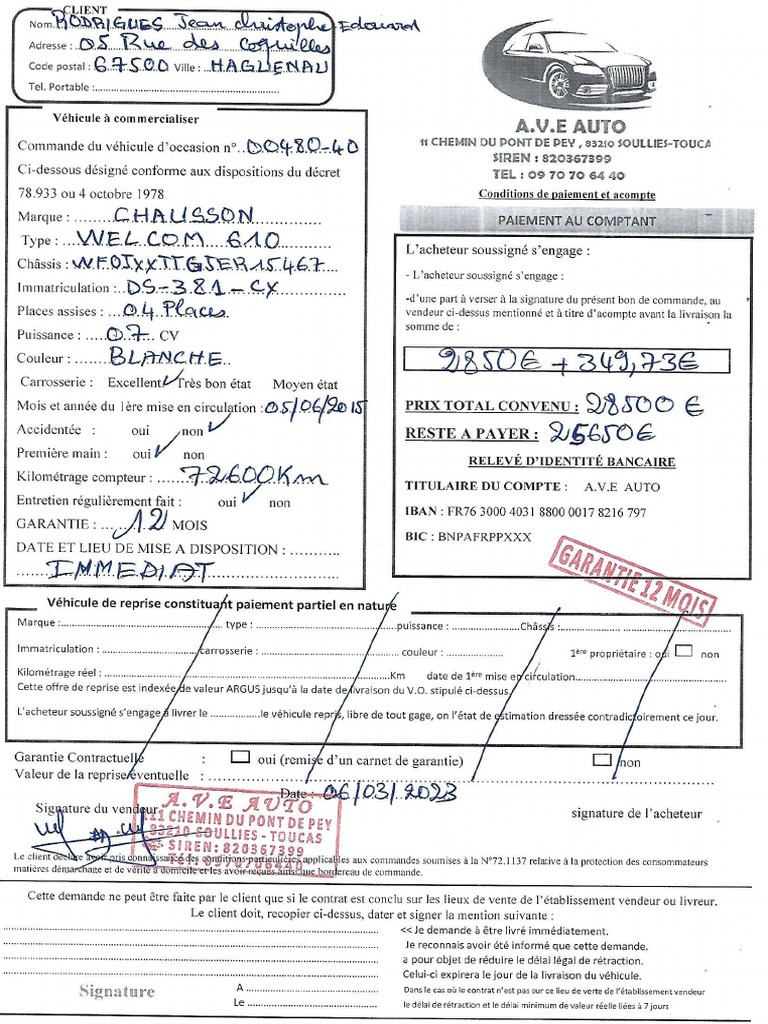 CLIENT
Nom RODRIGUES Jean Christophe Edouard
Adresse : 05 Rue des Coquilles
Code postal : 67500 Ville : HAGUENAU
Tel. Portable :
Véhicule à commercialiser
Commande du véhicule d'occasion n° 00480-40
Ci-dessous désigné conforme aux dispositions du décret
78.933 ou 4 octobre 1978
Marque : CHAUSSON
Type : WELCOM 610
Châssis : WF0JXXTTGJER15467
Immatriculation : DS-381-CX
Places assises : 04 Places
Puissance : 07 CV
Couleur : BLANCHE
Carrosserie : Excellent ✓ Très bon état Moyen état
Mois et année du 1ère mise en circulation : 05/06/2015
Accidentée : oui non ✓
Première main : oui ✓ non
Kilométrage compteur : 72600Km
Entretien régulièrement fait : oui ✓ non
GARANTIE : 12 MOIS
DATE ET LIEU DE MISE A DISPOSITION :
IMMEDIAT
A.V.E AUTO
11 CHEMIN DU PONT DE PEY , 83210 SOULLIES-TOUCA
SIREN : 820367399
TEL : 09 70 70 64 40
Conditions de paiement et acompte
PAIEMENT AU COMPTANT
L'acheteur soussigné s'engage :
- L'acheteur soussigné s'engage :
-d'une part à verser à la signature du présent bon de commande, au
vendeur ci-dessus mentionné et à titre d'acompte avant la livraison la
somme de :
2850€ + 349,73€
PRIX TOTAL CONVENU : 28500 €
RESTE A PAYER : 25650€
RELEVÉ D'IDENTITÉ BANCAIRE
TITULAIRE DU COMPTE : A.V.E AUTO
IBAN : FR76 3000 4031 8800 0017 8216 797
BIC : BNPAFRPPXXX
GARANTIE 12 MOIS
Véhicule de reprise constituant paiement partiel en nature
Marque : type : puissance : Châssis :
Immatriculation : carrosserie : couleur : 1ère propriétaire : oui non
Kilométrage réel : Km date de 1ère mise en circulation
Cette offre de reprise est indexée de valeur ARGUS jusqu'à la date de livraison du V.O. stipulé ci-dessus.
L'acheteur soussigné s'engage à livrer le le véhicule repris, libre de tout gage, on l'état de estimation dressée contradictoirement ce jour.
Garantie Contractuelle : oui (remise d'un carnet de garantie) non
Valeur de la reprise éventuelle :
Date : 06/03/2023
Signature du vendeur
signature de l'acheteur
A.V.E AUTO
11 CHEMIN DU PONT DE PEY
83210 SOULLIES - TOUCAS
SIREN: 820367399
Tel: 0970706440
Le client déclare avoir pris connaissance des conditions particulières applicables aux commandes soumises à la N°72.1137 relative à la protection des consommateurs
matières démarchage et de vérité à domicile et les avoir reçues ainsi que bordereau de commande.
Cette demande ne peut être faite par le client que si le contrat est conclu sur les lieux de vente de l'établissement vendeur ou livreur.
Le client doit, recopier ci-dessus, dater et signer la mention suivante :
<< Je demande à être livré immédiatement.
Je reconnais avoir été informé que cette demande.
a pour objet de réduire le délai légal de rétraction.
Celui-ci expirera le jour de la livraison du véhicule.
Dans le cas où le contrat n'est pas sur ce lieu de vente de l'établissement vendeur
le délai de rétraction et le délai minimum de valeur réelle liées à 7 jours
Signature
A
Le